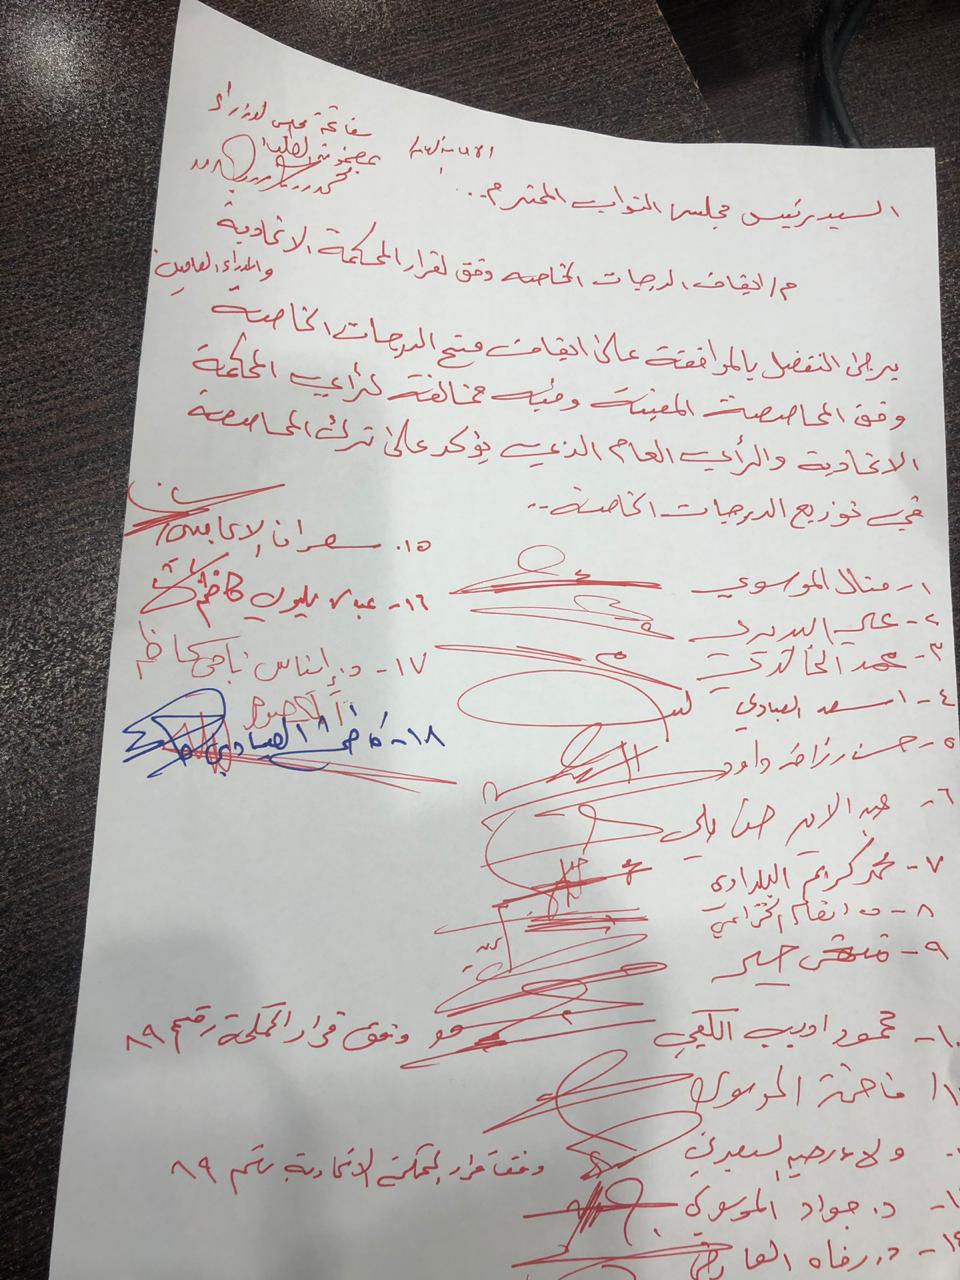 مفاتحة مجلس الوزراء
بمضمون الطلب
السيد رئيس مجلس النواب المحترم ..
م/ ايقاف الدرجات الخاصه وفق لقرار المحكمة الاتحادية
والمدراء العامين
يرجى التفضل بالموافقة على ايقاف فتح الدرجات الخاصة
وفق المحاصصة المقيتة وفيه مخالفة لرأي المحكمة
الاتحادية والرأي العام الذي يؤكد على ترك المحاصصة
في توزيع الدرجات الخاصة ..
١- منال الموسوي
٢- علي البديري
٣- محمد الخالدي
٤- اسعد العبادي
٥- حسن رزاق داود
٦- عبد الامير
٧- محمد كريم البلداوي
٨- د انغام الخزاعي
٩- حسين
١٠- محمود اديب الكعبي
وفق قرار المحكمة رقم ٨٩
١١ فاطمة الموسوي
ولاء رحيم السعيدي
وفقا قرار المحكمة الاتحادية رقم ٨٩
د. جواد الموسوي
١٤- د. رفاه العارضي
١٥. سهران الاعاجيبي
١٦- عباس عليوي كاظم
١٧- د. إيناس ناجي كاظم
١٨- كاظم العبادي